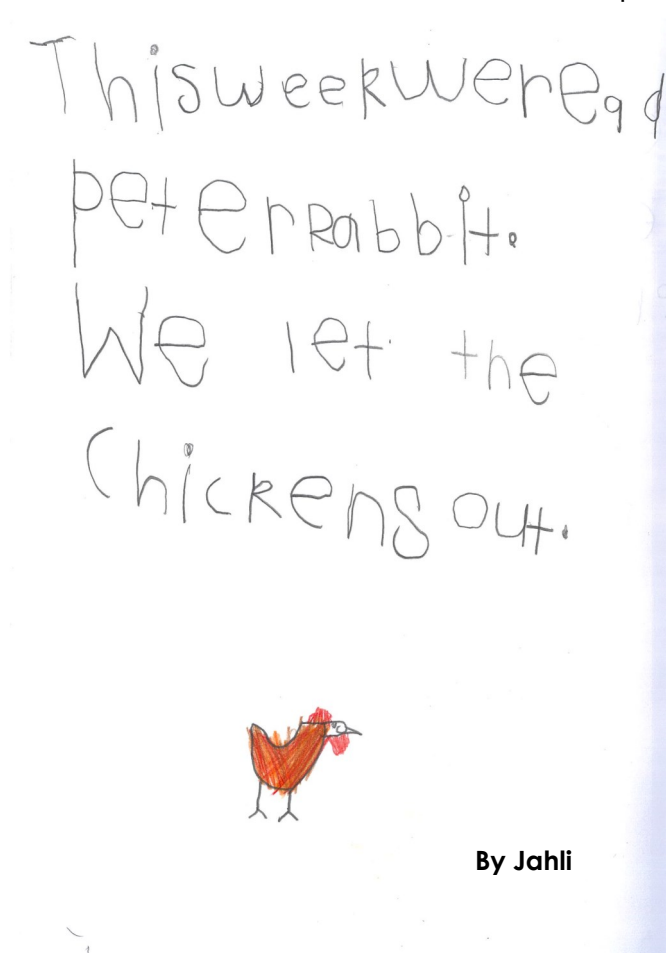 Thisweekweread
peterRabbit.
We let the
Chickens out.
By Jahli